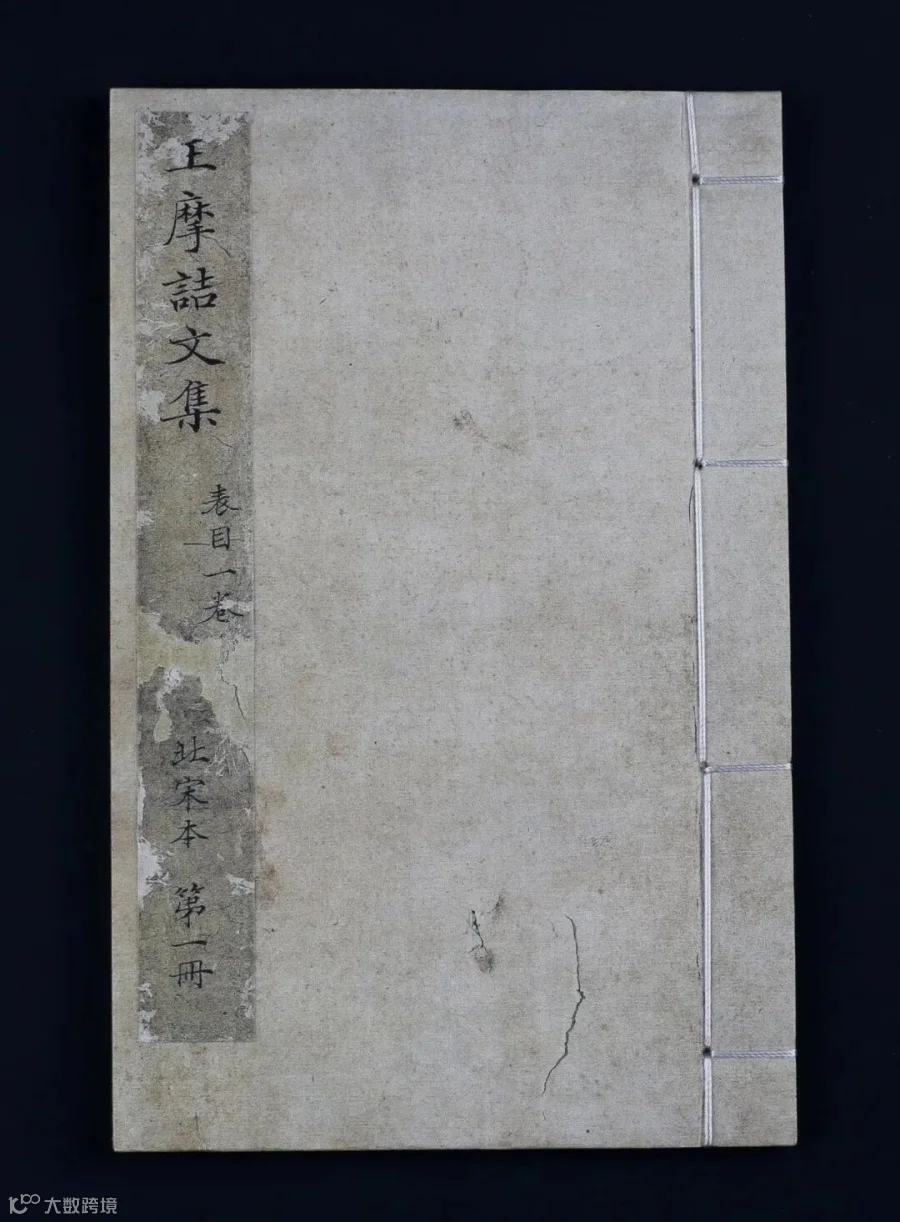 王摩詰文集
表目一卷
北宋本 第一冊
大数跨境